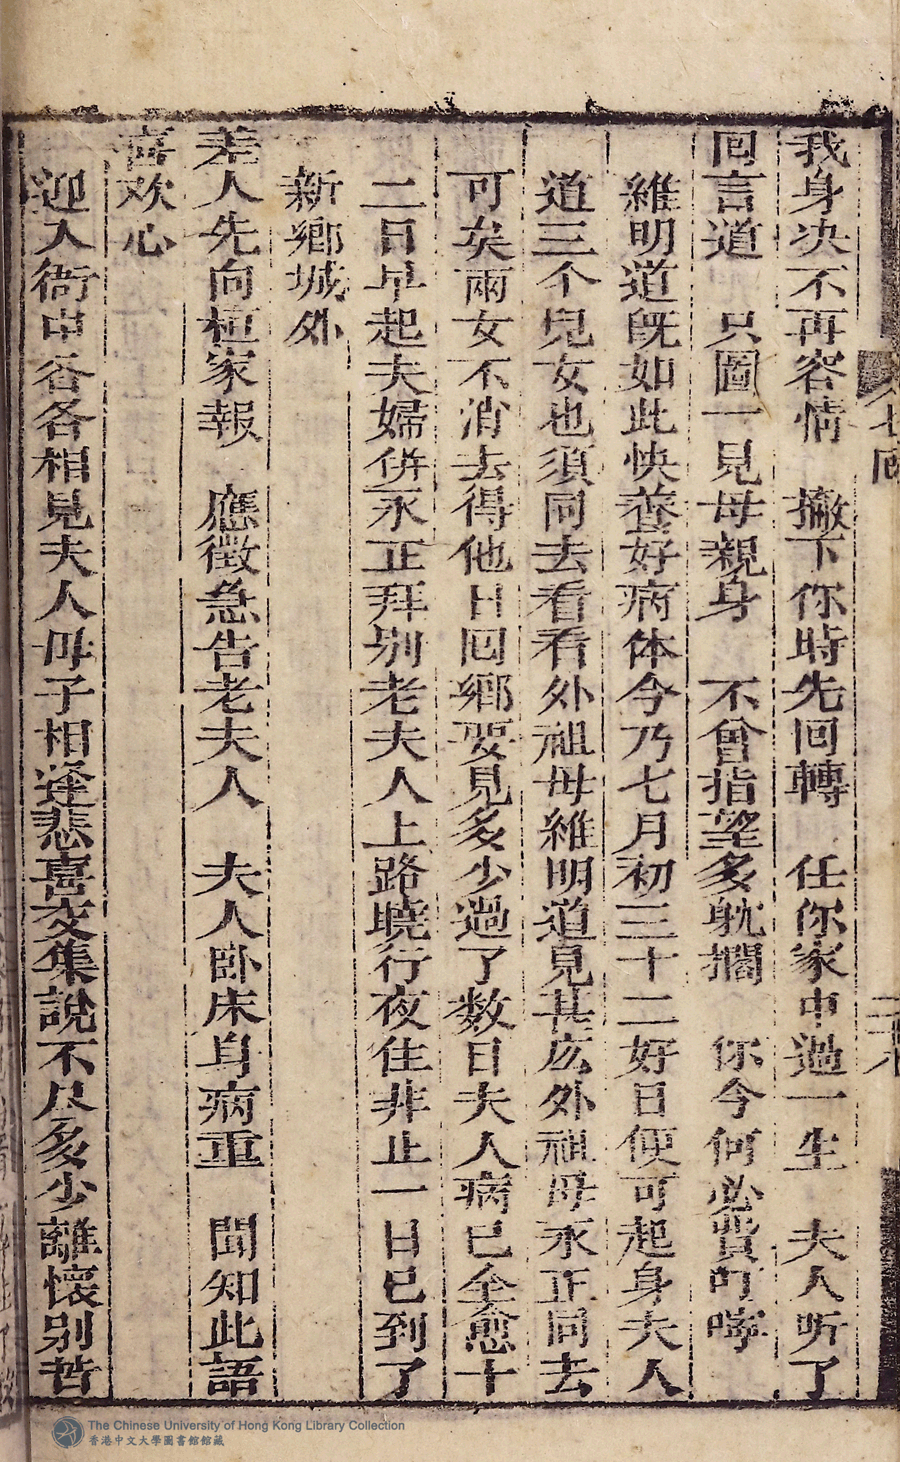 我身决不再容情　撇下你時先回轉　任你家中過一生　夫人听了
回言道　只圖一見母親身　不曾指望多躭擱　你今何必費叮嚀
維明道既如此快養好病体今乃七月初三十二好日便可起身夫人
道三个兒女也須同去看看外祖母維明道見甚庅外祖母永正同去
可矣兩女不消去得他日回鄉要見多少過了数日夫人病已全愈十
二日早起夫婦併永正拜别老夫人上路曉行夜住非止一日已到了
新鄉城外
差人先向桓家報　應徵急告老夫人　夫人卧床身病重　聞知此語
喜欢心
迎入衙中各各相見夫人母子相逢悲喜交集說不尽多少離懷别
The Chinese University of Hong Kong Library Collection
香港中文大學圖書館館藏